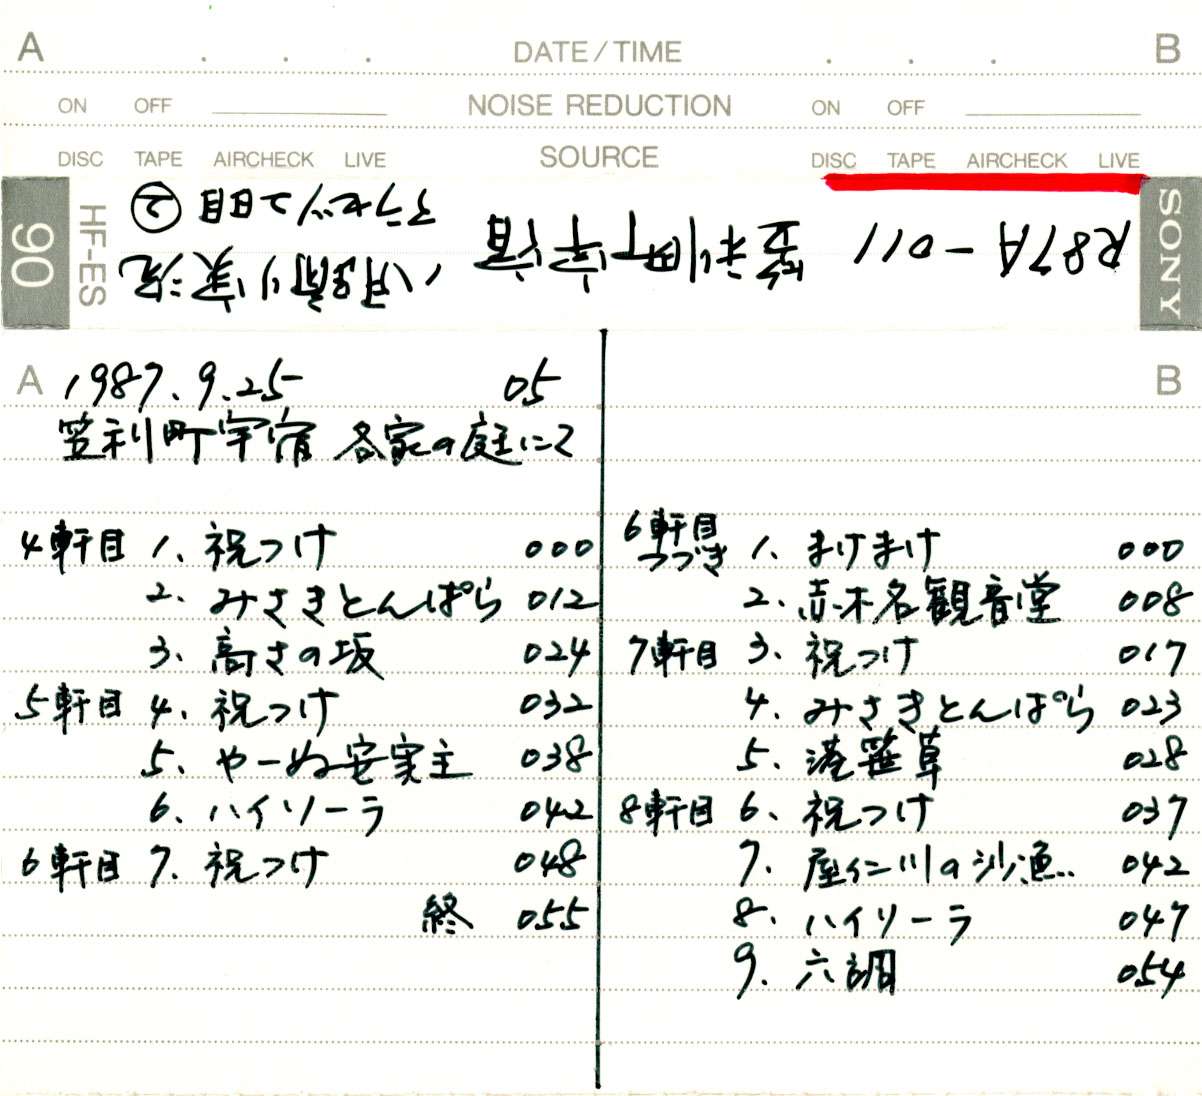 A DATE/TIME B
ON OFF NOISE REDUCTION ON OFF
DISC TAPE AIRCHECK LIVE SOURCE DISC TAPE AIRCHECK LIVE
SONY
HF-ES 90
R87A-011 笠利町宇宿 八月踊り実況
アラセツ2日目 ②
A 1987.9.25 05
笠利町宇宿 各家の庭にて
4軒目 1. 祝つけ 000
2. みさきとんぱら 012
3. 高さの坂 024
5軒目 4. 祝つけ 032
5. やーぬ安実主 038
6. ハイソーラ 042
6軒目 7. 祝つけ 048
終 055
B
6軒目つづき 1. まけまけ 000
2. 赤木名観音堂 008
7軒目 3. 祝つけ 017
4. みさきとんぱら 023
5. 港笹草 028
8軒目 6. 祝つけ 037
7. 屋仁川の沙漁.. 042
8. ハイソーラ 047
9. 六調 054